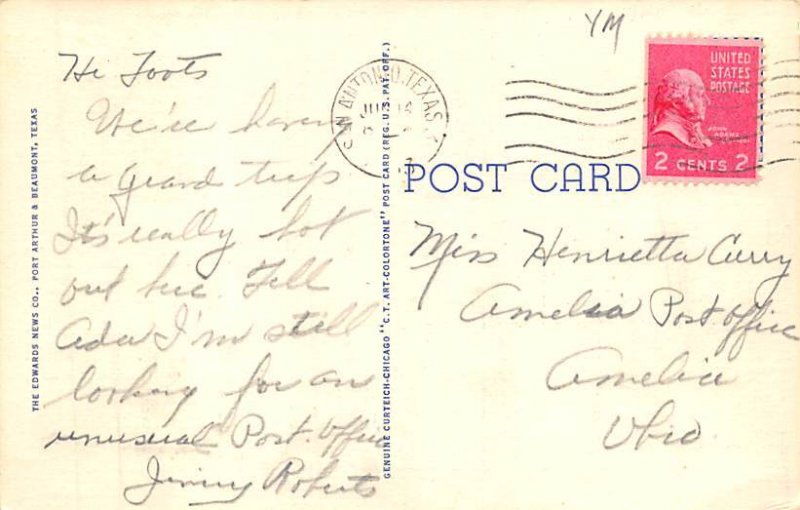 Hi Toots
We're haven
a grand trip
It's really hot
out here. Tell
Ada I'm still
looking for an
unusual Post. Office
Jimmy Roberts
THE EDWARDS NEWS CO., PORT ARTHUR & BEAUMONT, TEXAS
GENUINE CURTEICH-CHICAGO "C.T. ART-COLORTONE" POST CARD (REG. U.S. PAT. OFF.)
YM
SAN ANTONIO, TEXAS
UNITED
STATES
POSTAGE
JOHN ADAMS
2 CENTS 2
POST CARD
Miss Henrietta Curry
Amelia Post. Office
Amelia
Ohio.